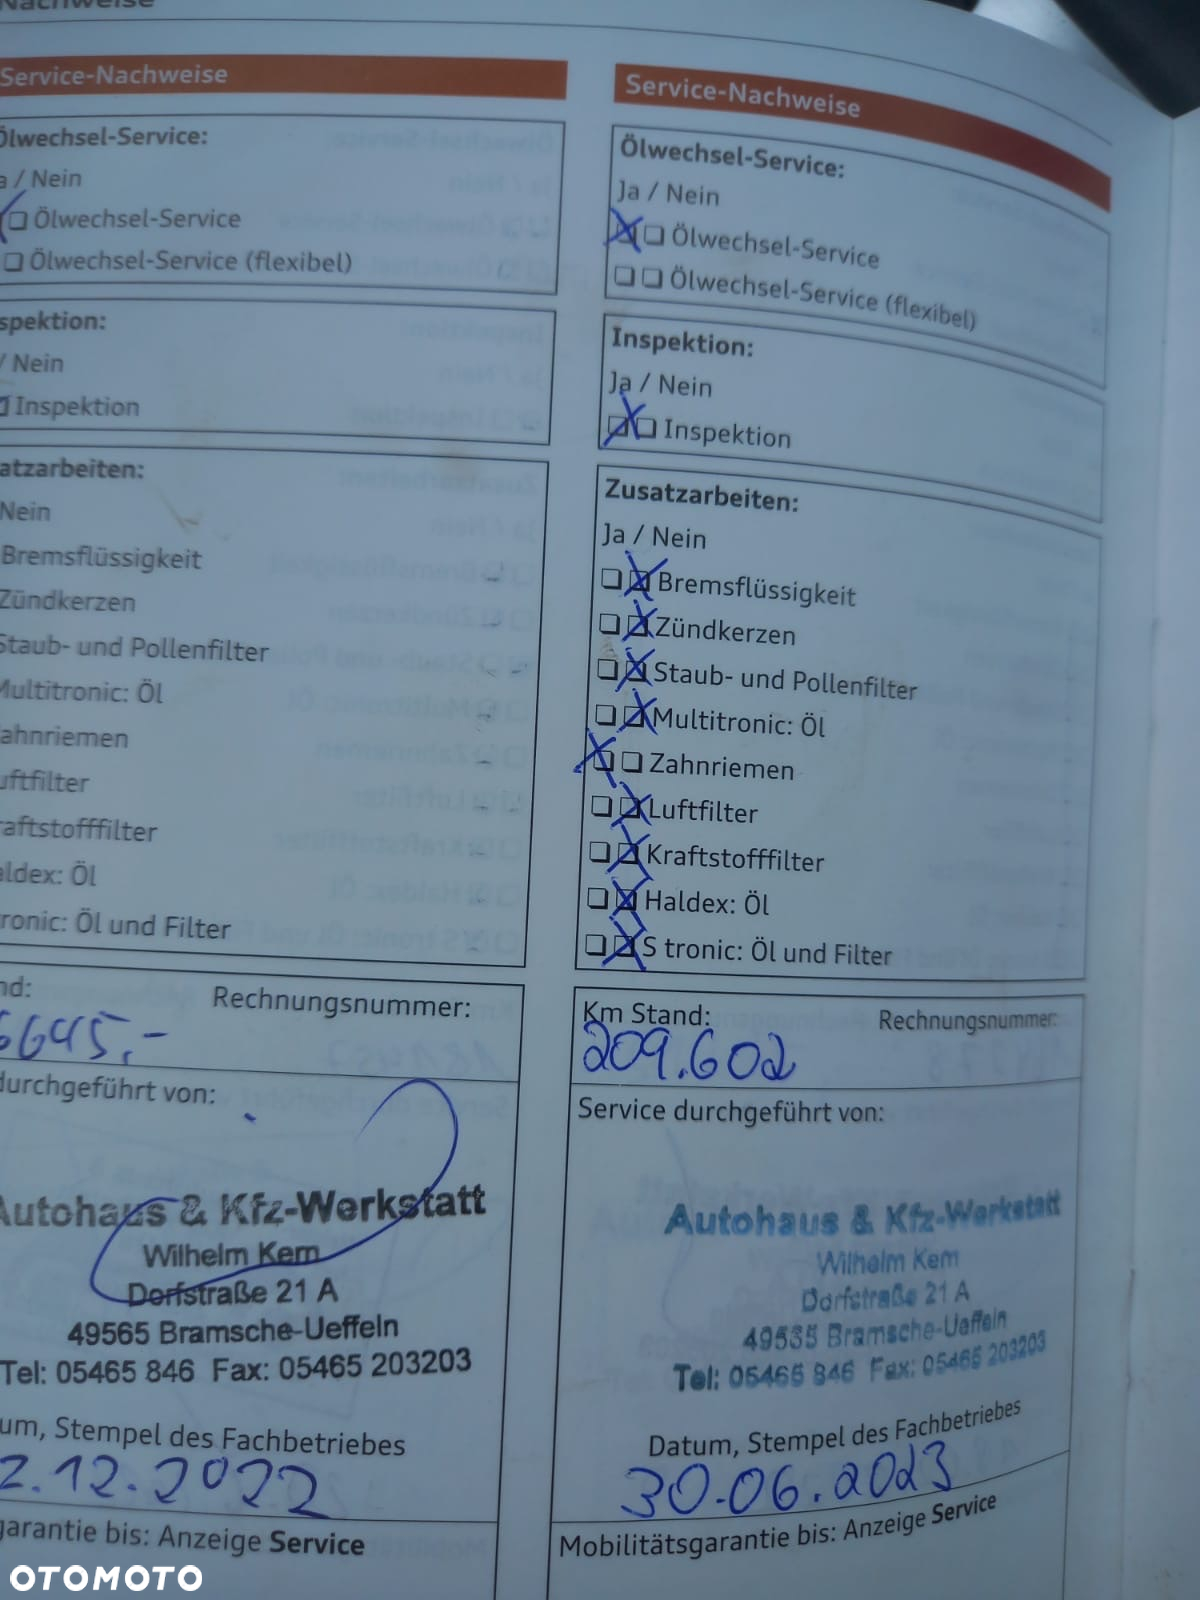 Nachweise
Service-Nachweise
Ölwechsel-Service:
a / Nein
Ölwechsel-Service
Ölwechsel-Service (flexibel)
spektion:
/ Nein
Inspektion
atzarbeiten:
Nein
Bremsflüssigkeit
Zündkerzen
Staub- und Pollenfilter
Multitronic: Öl
ahnriemen
uftfilter
raftstofffilter
aldex: Öl
tronic: Öl und Filter
nd: Rechnungsnummer:
6645.-
durchgeführt von:
Autohaus & Kfz-Werkstatt
Wilhelm Kem
Dorfstraße 21 A
49565 Bramsche-Ueffeln
Tel: 05465 846 Fax: 05465 203203
um, Stempel des Fachbetriebes
2.12.2022
garantie bis: Anzeige Service
Service-Nachweise
Ölwechsel-Service:
Ja / Nein
Ölwechsel-Service
Ölwechsel-Service (flexibel)
Inspektion:
Ja / Nein
Inspektion
Zusatzarbeiten:
Ja / Nein
Bremsflüssigkeit
Zündkerzen
Staub- und Pollenfilter
Multitronic: Öl
Zahnriemen
Luftfilter
Kraftstofffilter
Haldex: Öl
S tronic: Öl und Filter
Km Stand: Rechnungsnummer:
209.602
Service durchgeführt von:
Autohaus & Kfz-Werkstatt
Wilhelm Kem
Dorfstraße 21 A
49565 Bramsche-Ueffeln
Tel: 05465 846 Fax: 05465 203203
Datum, Stempel des Fachbetriebes
30.06.2023
Mobilitätsgarantie bis: Anzeige Service
OTOMOTO